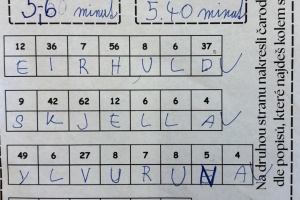 5,6 minut 5.40 minut
12 36 7 56 8 6 37
E I R H U L D
9 42 62 12 6 6 4
S K J E L L A
49 6 27 8 7 8 5 4
Y L V U R U N A
Na druhou stranu nakresli čarod
dle popisů, které najdeš kolem s